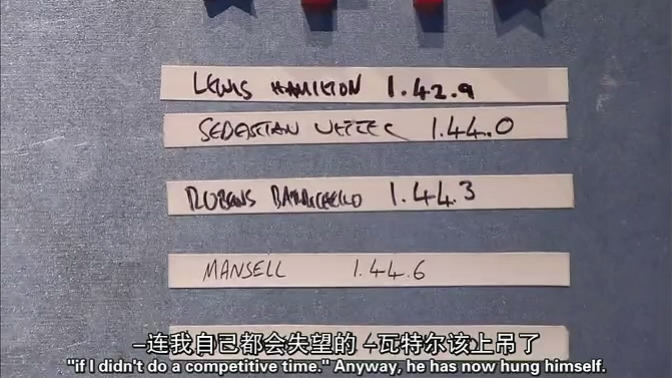 LEWIS HAMILTON 1.42.9
SEBASTIAN VETTEL 1.44.0
RUBENS BARRICHELLO 1.44.3
MANSELL 1.44.6
–连我自己都会失望的 –瓦特尔该上吊了
"if I didn't do a competitive time." Anyway, he has now hung himself.